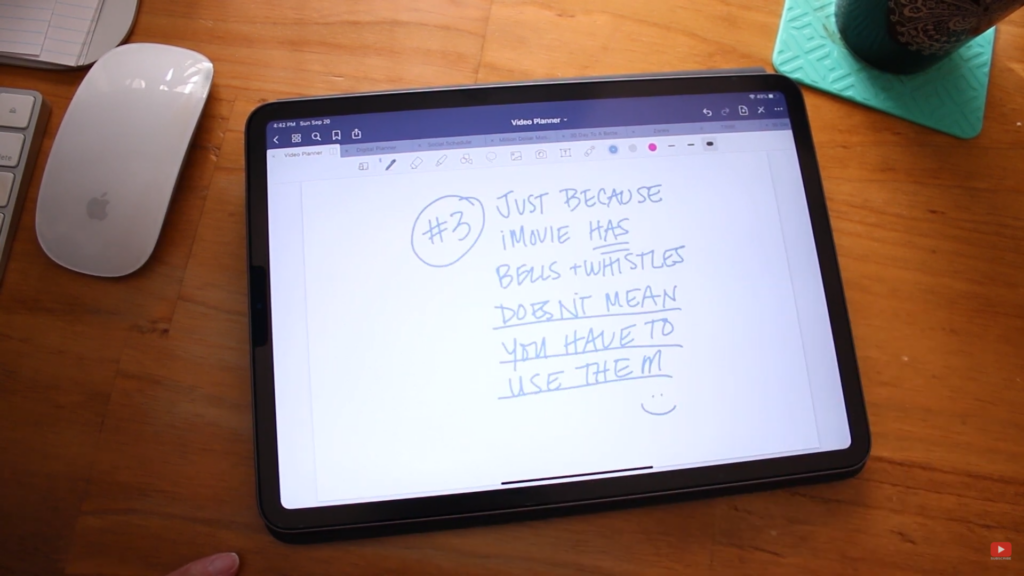 4:42 PM Sun Sep 20
49%
Video Planner
Video Planner
Digital Planner
Social Schedule
#3 JUST BECAUSE
iMOVIE HAS
BELLS + WHISTLES
DOESN'T MEAN
YOU HAVE TO
USE THEM
delete